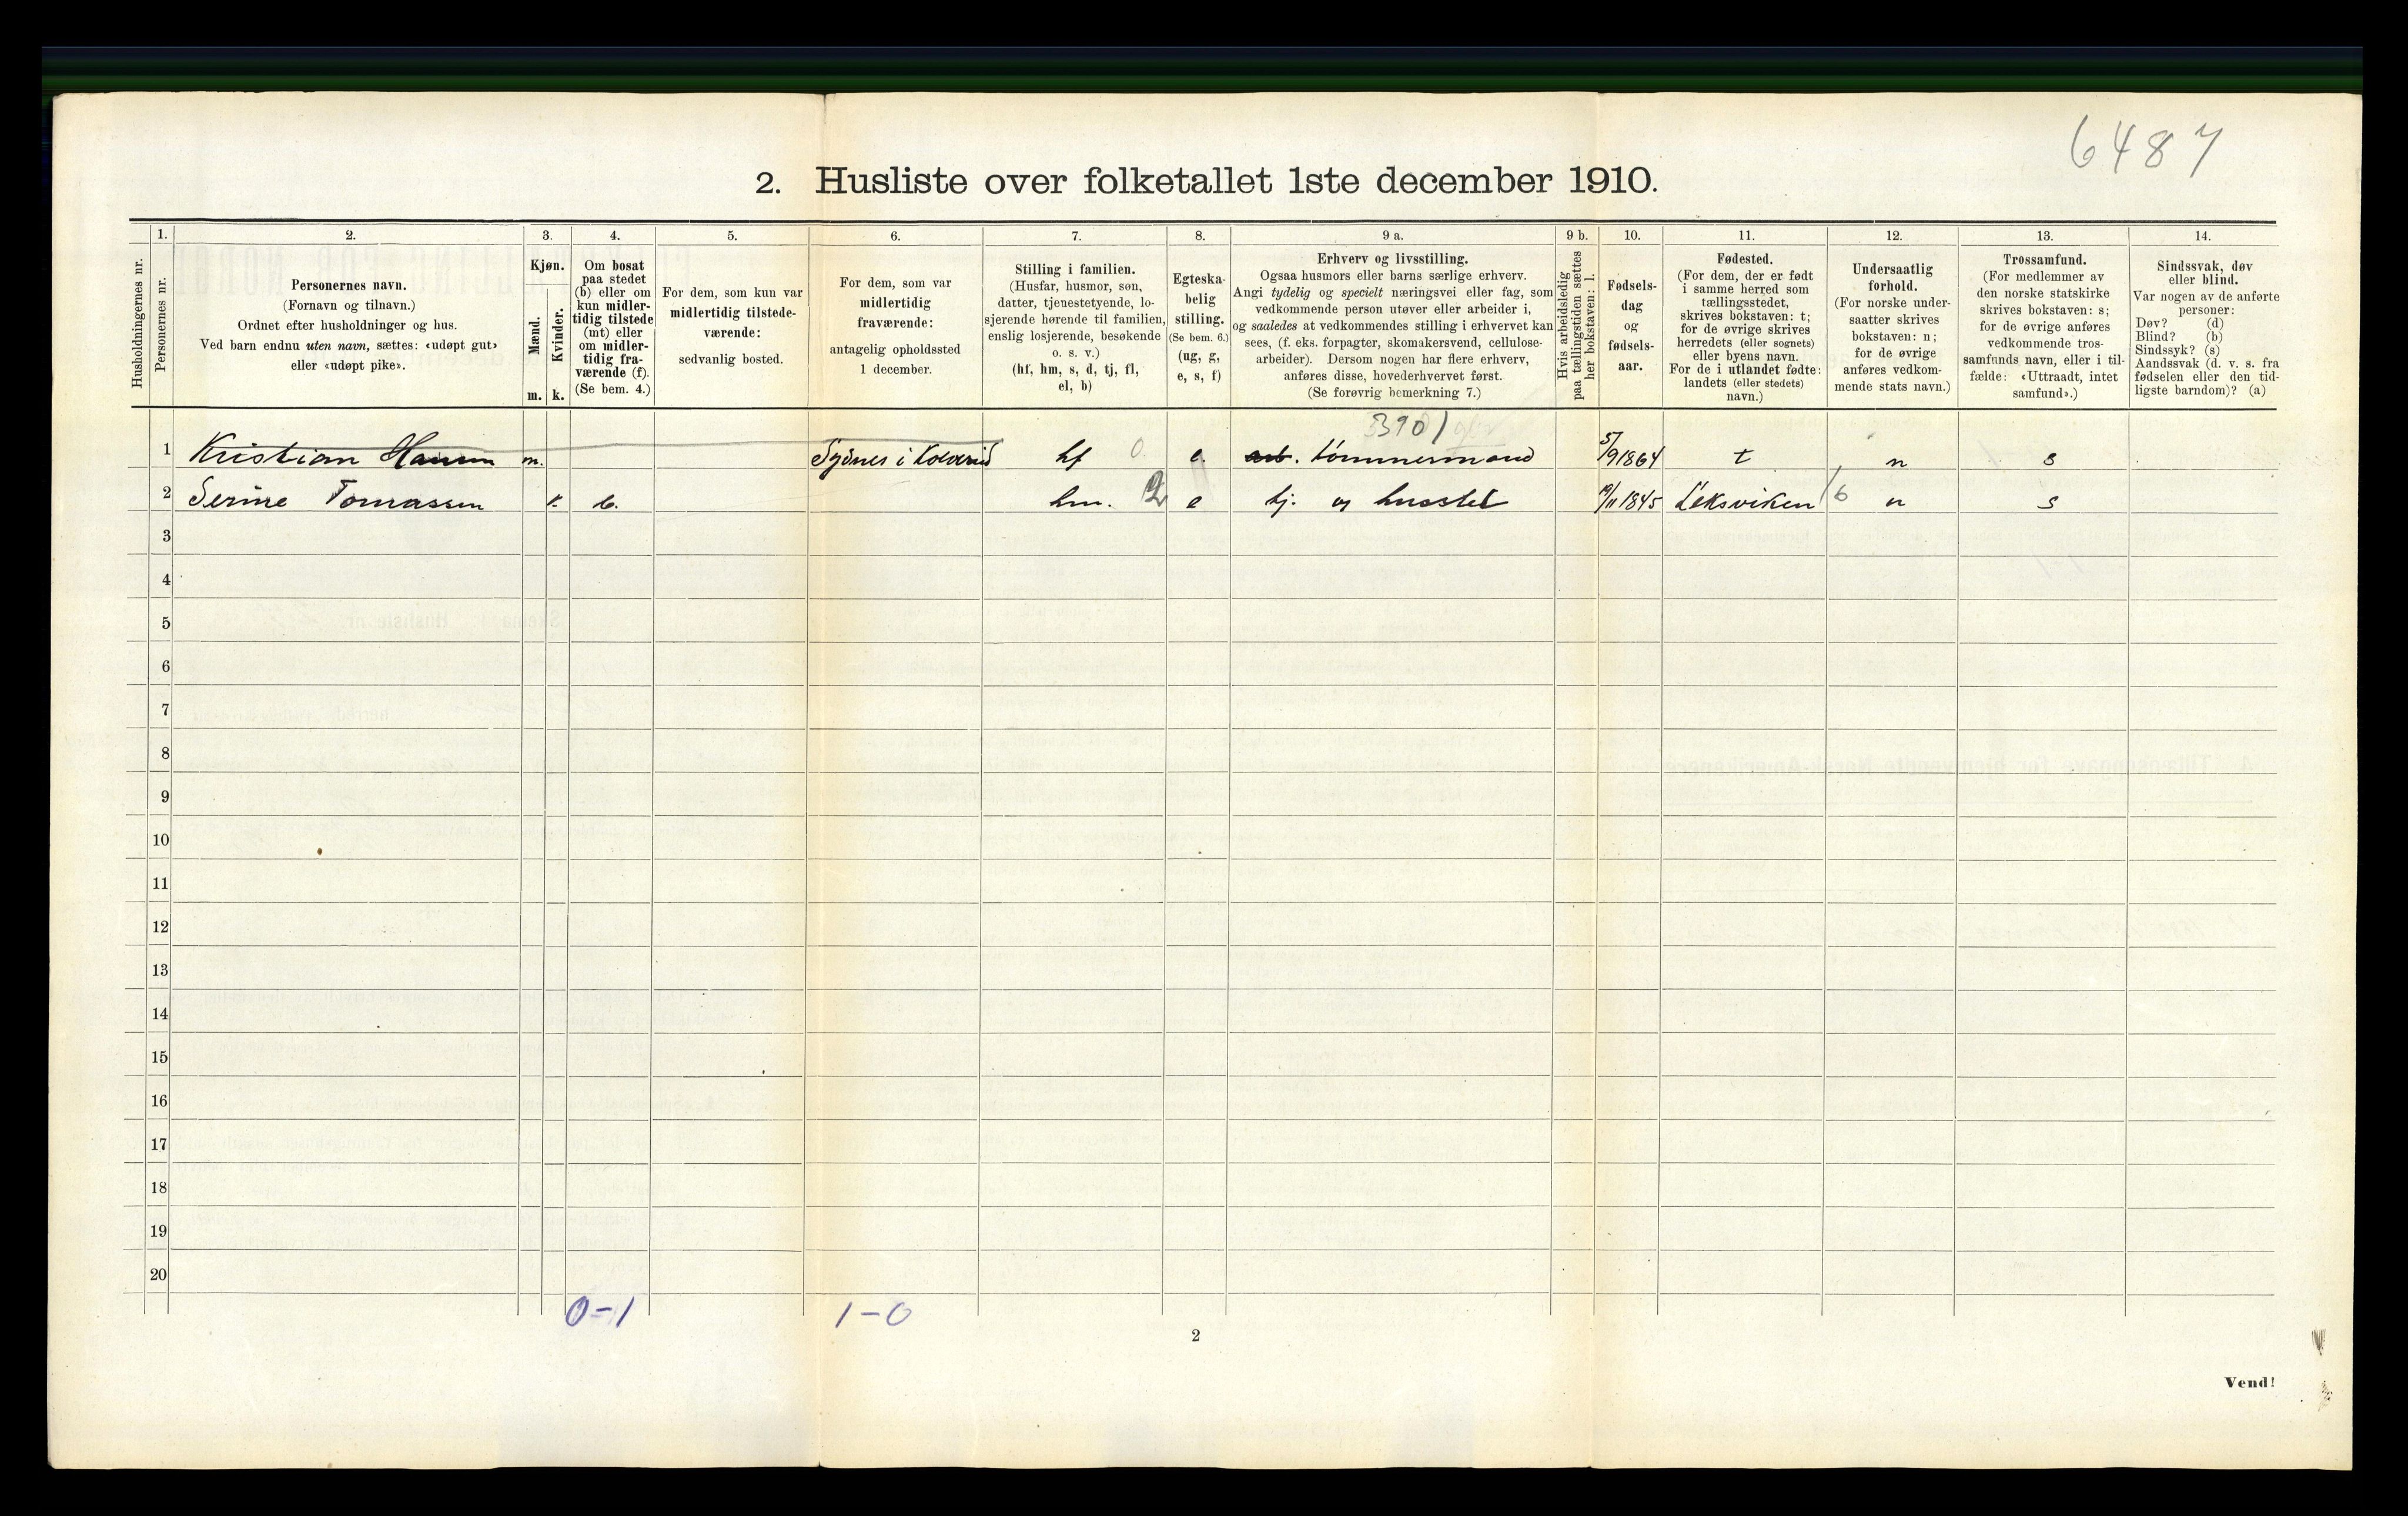 6487
2. Husliste over folketallet 1ste december 1910.
Husholdningernes nr.
1.
Personernes nr.
2.
Personernes navn.
(Fornavn og tilnavn.)
Ordnet efter husholdninger og hus.
Ved barn endnu uten navn, sættes: «udøpt gut»
eller «udøpt pike».
3.
Kjøn.
Mænd.
Kvinder.
m. k.
4.
Om bosat
paa stedet
(b) eller om
kun midler-
tidig tilstede
(mt) eller
om midler-
tidig fra-
værende (f).
(Se bem. 4.)
5.
For dem, som kun var
midlertidig tilstede-
værende:
sedvanlig bosted.
6.
For dem, som var
midlertidig
fraværende:
antagelig opholdssted
1 december.
7.
Stilling i familien.
(Husfar, husmor, søn,
datter, tjenestetyende, lo-
sjerende hørende til familien,
enslig losjerende, besøkende
o. s. v.)
(hf, hm, s, d, tj, fl,
el, b)
8.
Egteska-
belig
stilling.
(Se bem. 6.)
(ug, g,
e, s, f)
9 a.
Erhverv og livsstilling.
Ogsaa husmors eller barns særlige erhverv.
Angi tydelig og specielt næringsvei eller fag, som
vedkommende person utøver eller arbeider i,
og saaledes at vedkommendes stilling i erhvervet kan
sees, (f. eks. forpagter, skomakersvend, cellulose-
arbeider). Dersom nogen har flere erhverv,
anføres disse, hovederhvervet først.
(Se forøvrig bemerkning 7.)
9 b.
Hvis arbeidsledig
paa tællingstiden sættes
her bokstaven: l.
10.
Fødsels-
dag
og
fødsels-
aar.
11.
Fødested.
(For dem, der er født
i samme herred som
tællingsstedet,
skrives bokstaven: t;
for de øvrige skrives
herredets (eller sognets)
eller byens navn.
For de i utlandet fødte:
landets (eller stedets)
navn.)
12.
Undersaatlig
forhold.
(For norske under-
saatter skrives
bokstaven: n;
for de øvrige
anføres vedkom-
mende stats navn.)
13.
Trossamfund.
(For medlemmer av
den norske statskirke
skrives bokstaven: s;
for de øvrige anføres
vedkommende tros-
samfunds navn, eller i til-
fælde: «Uttraadt, intet
samfund».)
14.
Sindssvak, døv
eller blind.
Var nogen av de anførte
personer:
Døv? (d)
Blind? (b)
Sindssyk? (s)
Aandssvak (d. v. s. fra
fødselen eller den tid-
ligste barndom)? (a)
3901
1 Kristian Hansen m. Sydnes i hf 0 e. arb. tømmermand 5/9 1864 t n s
2 Serine Tomassen k. b. hm. 2 e tj. og husstel 19/11 1845 Leksviken 16 n s
3
4
5
6
7
8
9
10
11
12
13
14
15
16
17
18
19
20
0-1 1-0
2
Vend!